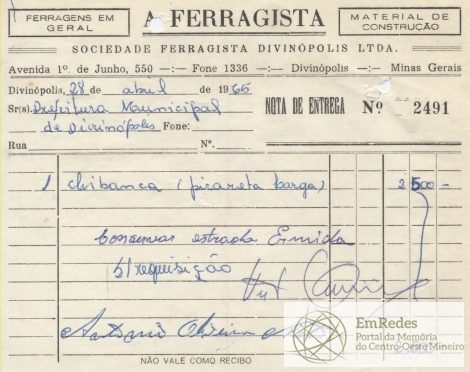 FERRAGENS EM GERAL
A FERRAGISTA
MATERIAL DE CONSTRUÇÃO
SOCIEDADE FERRAGISTA DIVINÓPOLIS LTDA.
Avenida 1º. de Junho, 550 —:— Fone 1336 —:— Divinópolis —:— Minas Gerais
Divinópolis, 28 de abril de 1965
Sr(s). Prefeitura Municipal
de Divinópolis Fone:
NOTA DE ENTREGA Nº 2491
Rua Nº.
1 chibanca (picareta larga) 2500
Conservar estrada Ermida
s/ requisição
Antonio Oliveira
EmRedes
Portal da Memória
do Centro-Oeste Mineiro
NÃO VALE COMO RECIBO